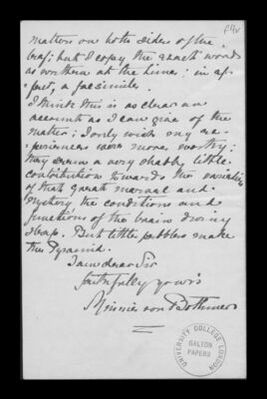 f4v
matters on both sides of the
leaf; but I copy the exact words
as written at the time; in ef-
fect, a facsimile.
I think this is as clear an
account as I can give of the
matter; I only wish my ex-
periences were more worthy;
they seem a very shabby little
contribution towards the
of that great marvel and
mystery the conditions and
functions of the brain during
sleep. But little pebbles make
the Pyramid.
I am dear Sir
faithfully yours
Minnie von Bothmer
UNIVERSITY COLLEGE LONDON
GALTON
PAPERS